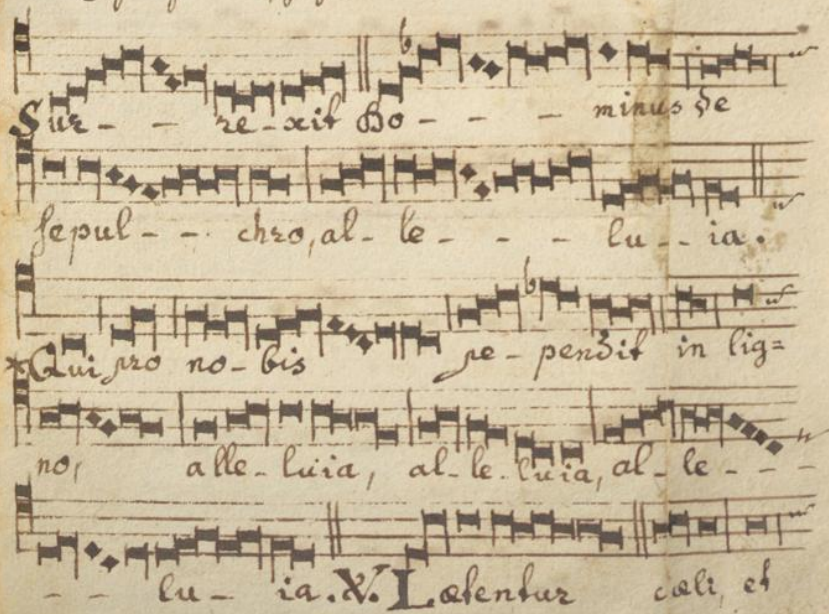 Sur - - re-xit Do - - - - minus de
sepul - - - chro, al-le - - - - lu - - ia.
*Qui pro no-bis pe-pendit in lig=
no, alle-luia, al-le-luia, al-le - - -
- - lu - ia. V. Lætentur cæli, et